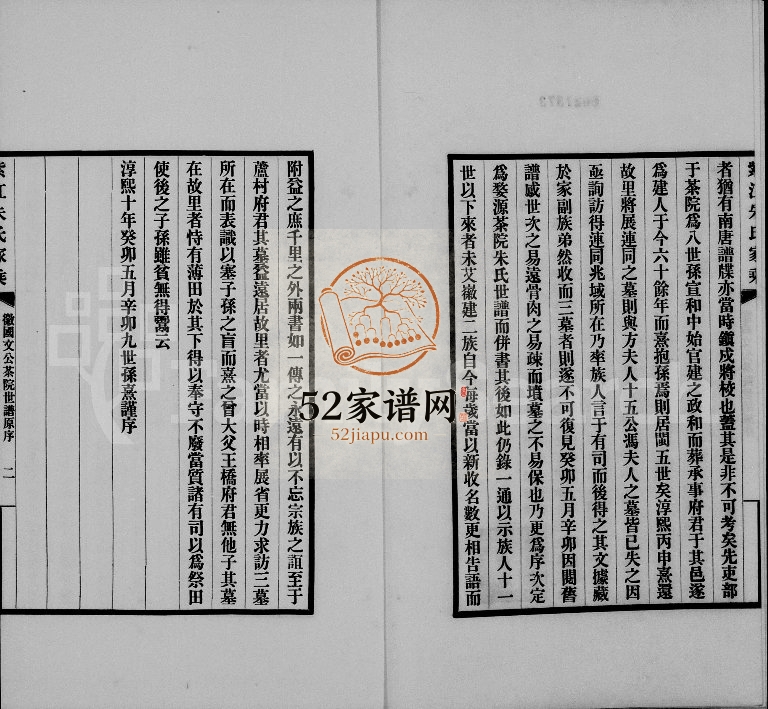 者猶有南唐譜牒亦當時鎭戍將校也蓋其是非不可考矣先吏部
于茶院爲八世孫宣和中始官建之政和而葬承事府君于其邑遂
爲建人于今六十餘年而熹抱孫焉則居閩五世矣淳熙丙申熹還
故里將展連同之墓則與方夫人十五公馮夫人之墓皆已失之因
亟詢訪得連同兆域所在乃率族人言于有司而後得之其文據藏
於家副族弟然收而三墓者則遂不可復見癸卯五月辛卯因閱舊
譜感世次之易遠骨肉之易疎而墳墓之不易保也乃更爲序次定
爲婺源茶院朱氏世譜而併書其後如此仍錄一通以示族人十一
世以下來者未艾徽建二族自今每歲當以新收名數更相告語而
附益之庶千里之外兩書如一傳之永遠有以不忘宗族之誼至于
蘆村府君其墓益遠居故里者尤當以時相率展省更力求訪三墓
所在而表識以塞子孫之責而熹之曾大父王橋府君無他子其墓
在故里者恃有薄田於其下得以奉守不廢當質諸有司以爲祭田
使後之子孫雖貧無得鬻云
淳熙十年癸卯五月辛卯九世孫熹謹序
徽國文公茶院世譜原序 二
52家谱网
52jiapu.com